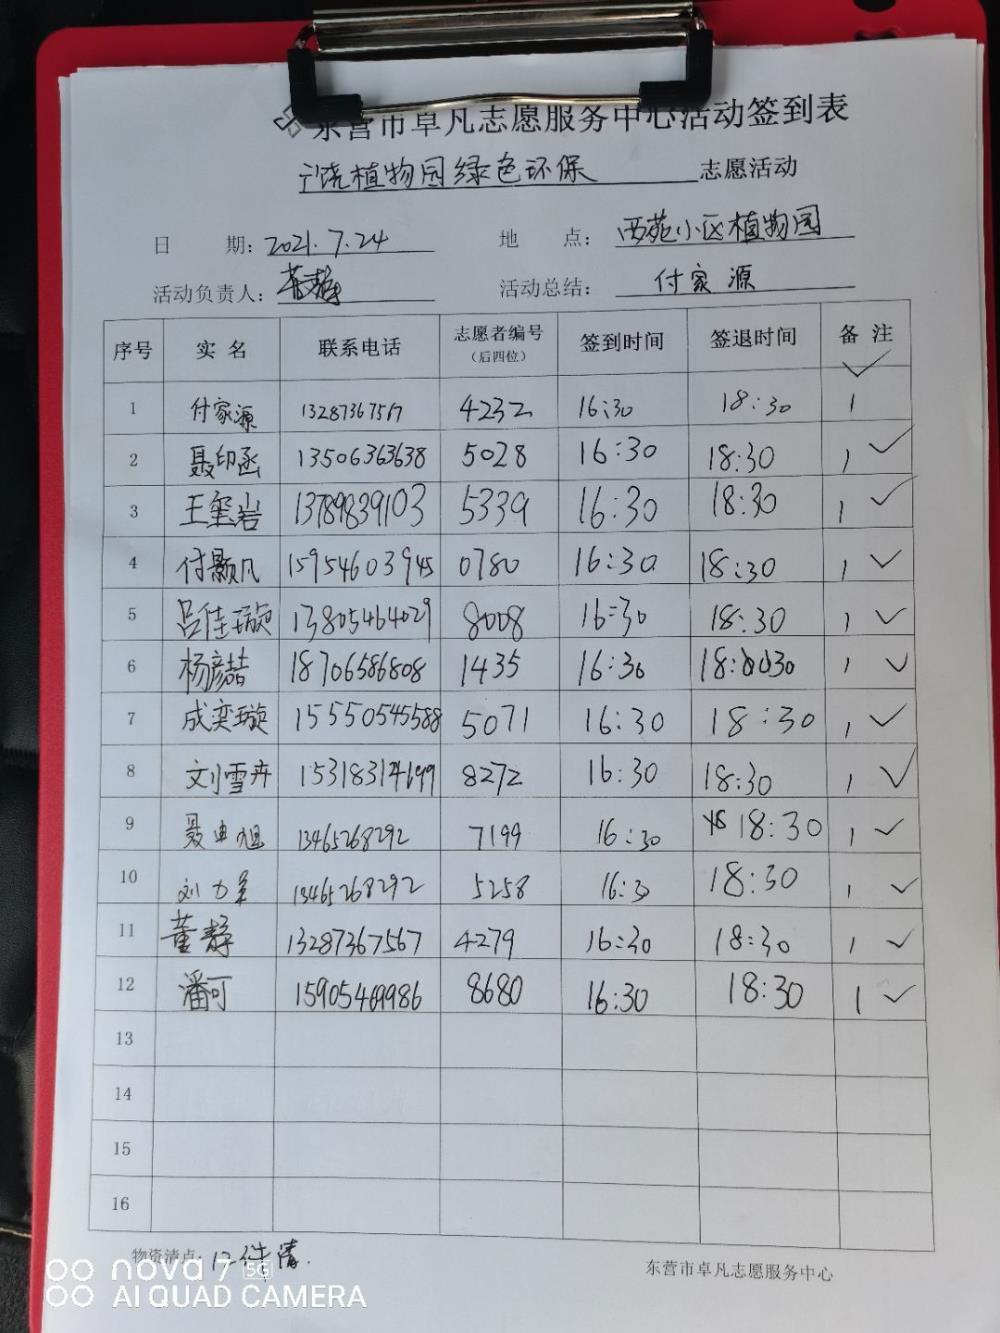 东营市卓凡志愿服务中心活动签到表
广饶植物园绿色环保 志愿活动
日 期: 2021.7.24 地 点: 西苑小区植物园
活动负责人: 董静 活动总结: 付家源
序号 实 名 联系电话 志愿者编号 (后四位) 签到时间 签退时间 备 注
1 付家源 13287367567 4232 16:30 18:30 1 ✓
2 聂印函 13506363638 5028 16:30 18:30 1 ✓
3 王玺岩 13789839103 5339 16:30 18:30 1 ✓
4 付颢凡 15954603945 0780 16:30 18:30 1 ✓
5 吕佳璇 13805464029 8008 16:30 18:30 1 ✓
6 杨彦喆 18706586808 1435 16:30 18:30 1 ✓
7 成奕璇 15550545588 5071 16:30 18:30 1 ✓
8 刘雪卉 15318314699 8272 16:30 18:30 1 ✓
9 13465268292 7199 16:30 18:30 1 ✓
10 刘力 13465268292 5258 16:30 18:30 1 ✓
11 董静 13287367567 4279 16:30 18:30 1 ✓
12 潘可 15905469986 8680 16:30 18:30 1 ✓
13
14
15
16
物资清点: 12件清.
东营市卓凡志愿服务中心
nova 7 5G
AI QUAD CAMERA